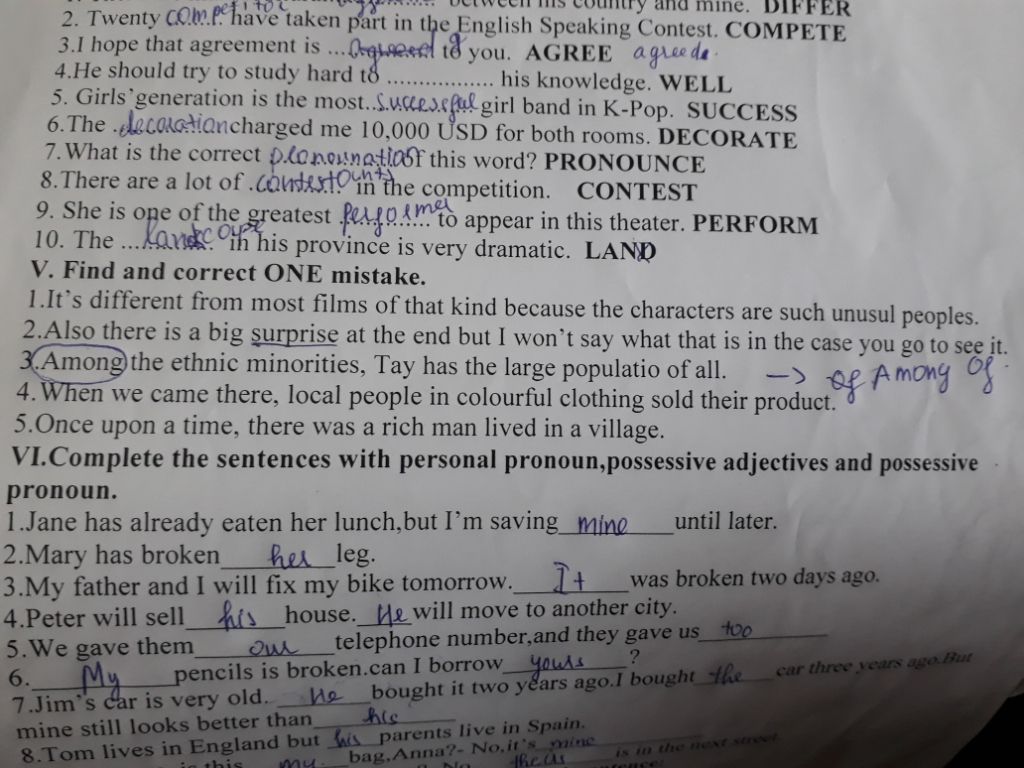 between his country and mine. DIFFER
2. Twenty compet have taken part in the English Speaking Contest. COMPETE
3.I hope that agreement is ... to you. AGREE agreeds
4.He should try to study hard to ................ his knowledge. WELL
5. Girls'generation is the most..successful girl band in K-Pop. SUCCESS
6.The .decoration charged me 10,000 USD for both rooms. DECORATE
7.What is the correct of this word? PRONOUNCE
8.There are a lot of .contestants in the competition. CONTEST
9. She is one of the greatest performer to appear in this theater. PERFORM
10. The ...landscape in his province is very dramatic. LAND
V. Find and correct ONE mistake.
1.It's different from most films of that kind because the characters are such unusul peoples.
2.Also there is a big surprise at the end but I won't say what that is in the case you go to see it.
3.Among the ethnic minorities, Tay has the large populatio of all. → of Among of
4.When we came there, local people in colourful clothing sold their product.
5.Once upon a time, there was a rich man lived in a village.
VI.Complete the sentences with personal pronoun,possessive adjectives and possessive
pronoun.
1.Jane has already eaten her lunch,but I'm saving mine until later.
2.Mary has broken her leg.
3.My father and I will fix my bike tomorrow. It was broken two days ago.
4.Peter will sell his house. He will move to another city.
5.We gave them our telephone number,and they gave us too
6. My pencils is broken.can I borrow yours ?
7.Jim's car is very old. He bought it two years ago.I bought the car three years ago.But
mine still looks better than his
8.Tom lives in England but his parents live in Spain.
this my bag,Anna?- No,it's mine
No is in the next street